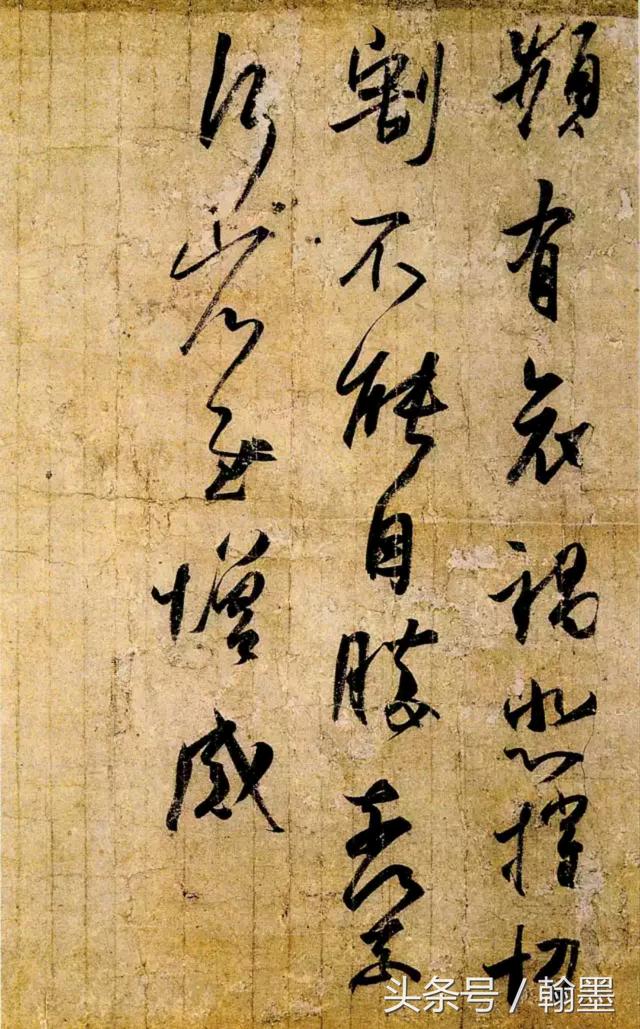 頻有哀禍悲摧切
割不能自勝奈何奈
何省慰增感
头条号 / 翰墨